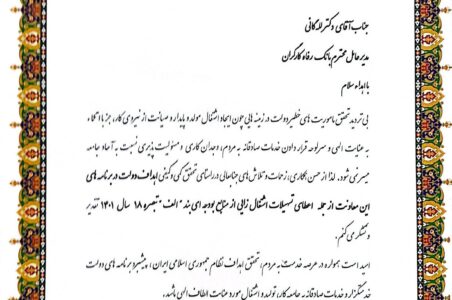 جناب آقای دکتر لله گانی
مدیرعامل محترم بانک رفاه کارگران
با اهداء سلام
بی تردید تحقق ماموریت های خطیر دولت در زمینه هایی چون ایجاد اشتغال مولد و پایدار و صیانت از نیروی کار، جز با اتکاء
به عنایت الهی و سرلوحه قرار دادن خدمات صادقانه به مردم، وجدان کاری و مسئولیت پذیری نسبت به آحاد جامعه
میسر نمی شود. لذا از حسن همکاری، زحمات و تلاش های جنابعالی در راستای تحقق کمی و کیفی اهداف دولت در برنامه های
این معاونت از جمله اعطای تسهیلات اشتغال زایی از منابع بودجه ای بند "الف" تبصره ۱۸ سال ۱۴۰۱ تقدیر
و تشکر می کنم.
امید است همواره در عرصه خدمت به مردم، تحقق اهداف نظام جمهوری اسلامی ایران، پیشبرد برنامه های دولت
خدمتگزار و خدمات صادقانه به جامعه کار، تولید و اشتغال مورد عنایت الطاف الهی باشید.